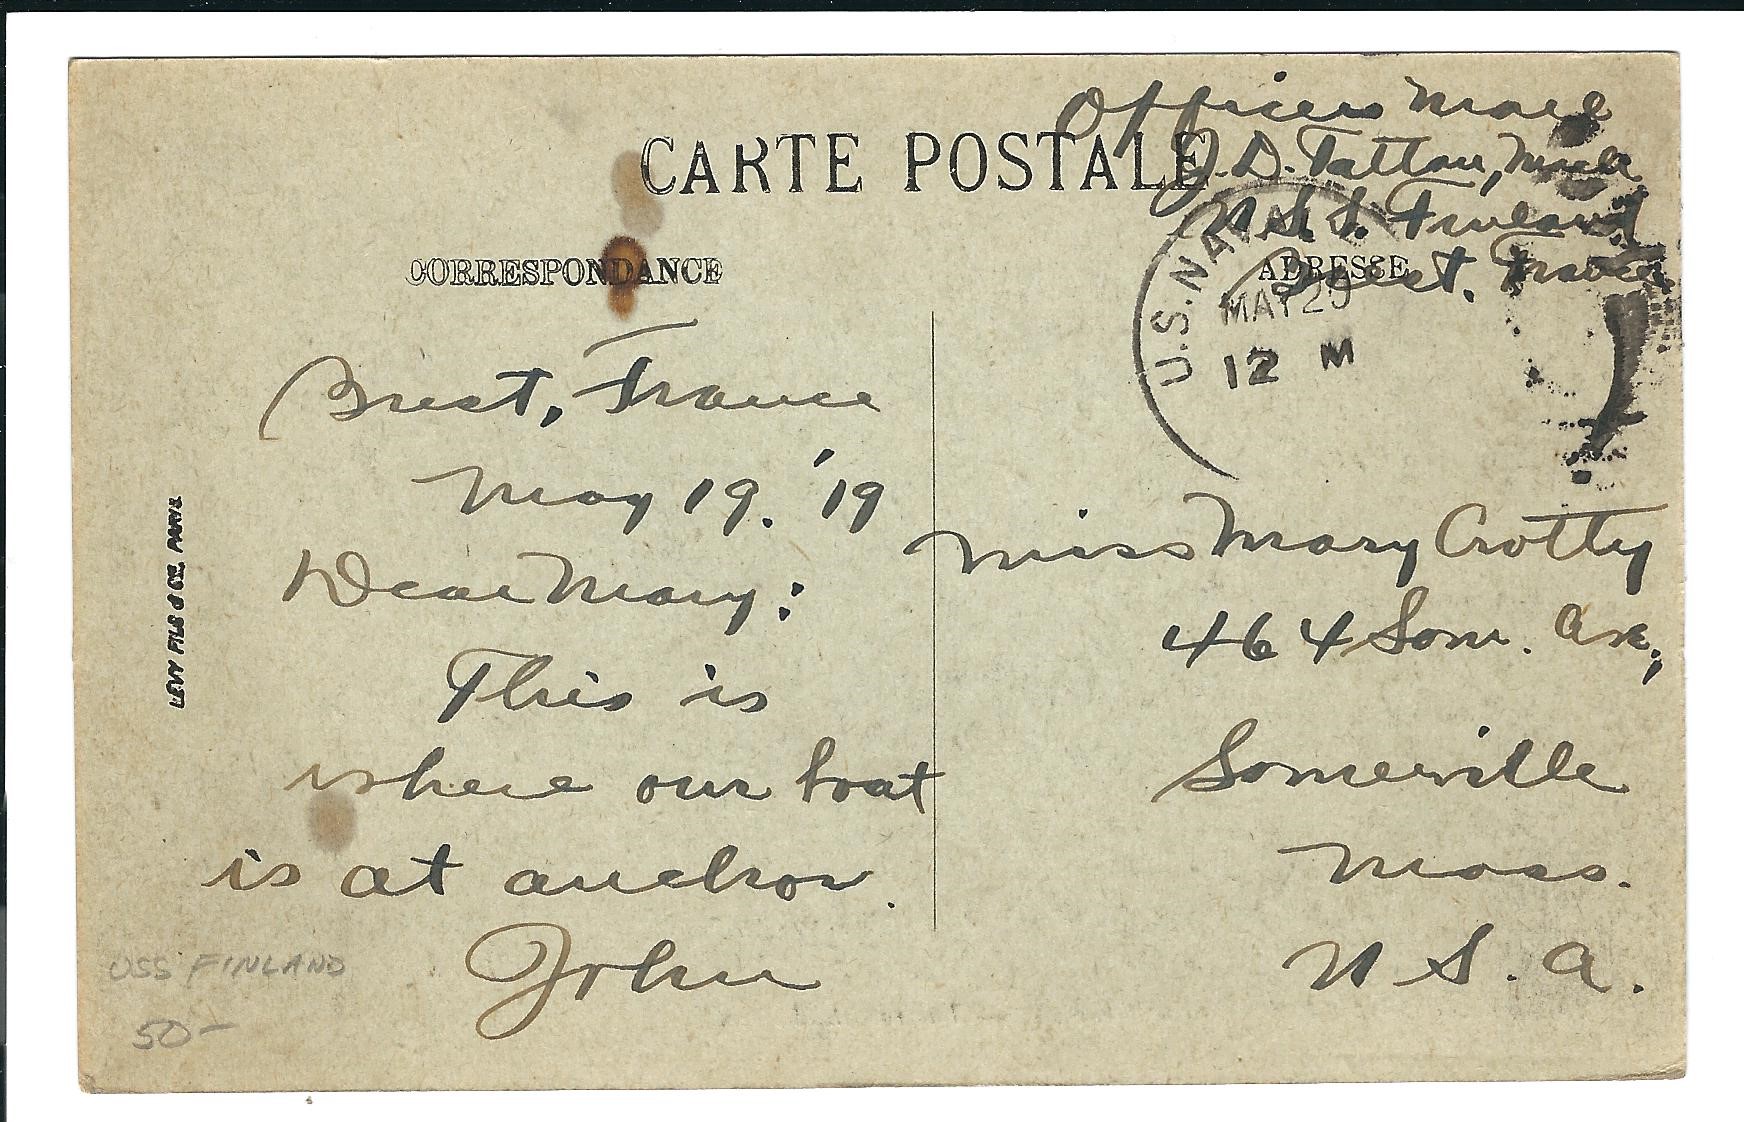 Officers Mail
CARTE POSTALE
J. D. Tattau,
U.S.S. Finland
Brest. France
CORRESPONDANCE
ADRESSE
U.S. NAVAL
MAY 20
12 M
Brest, France
May 19. '19
Dear Mary:
This is
where our boat
is at anchor.
John
Miss Mary Crotty
464 Som. Ave.,
Somerville
Mass.
U. S. A.
LEVY FILS & CIE. PARIS
USS FINLAND
50-